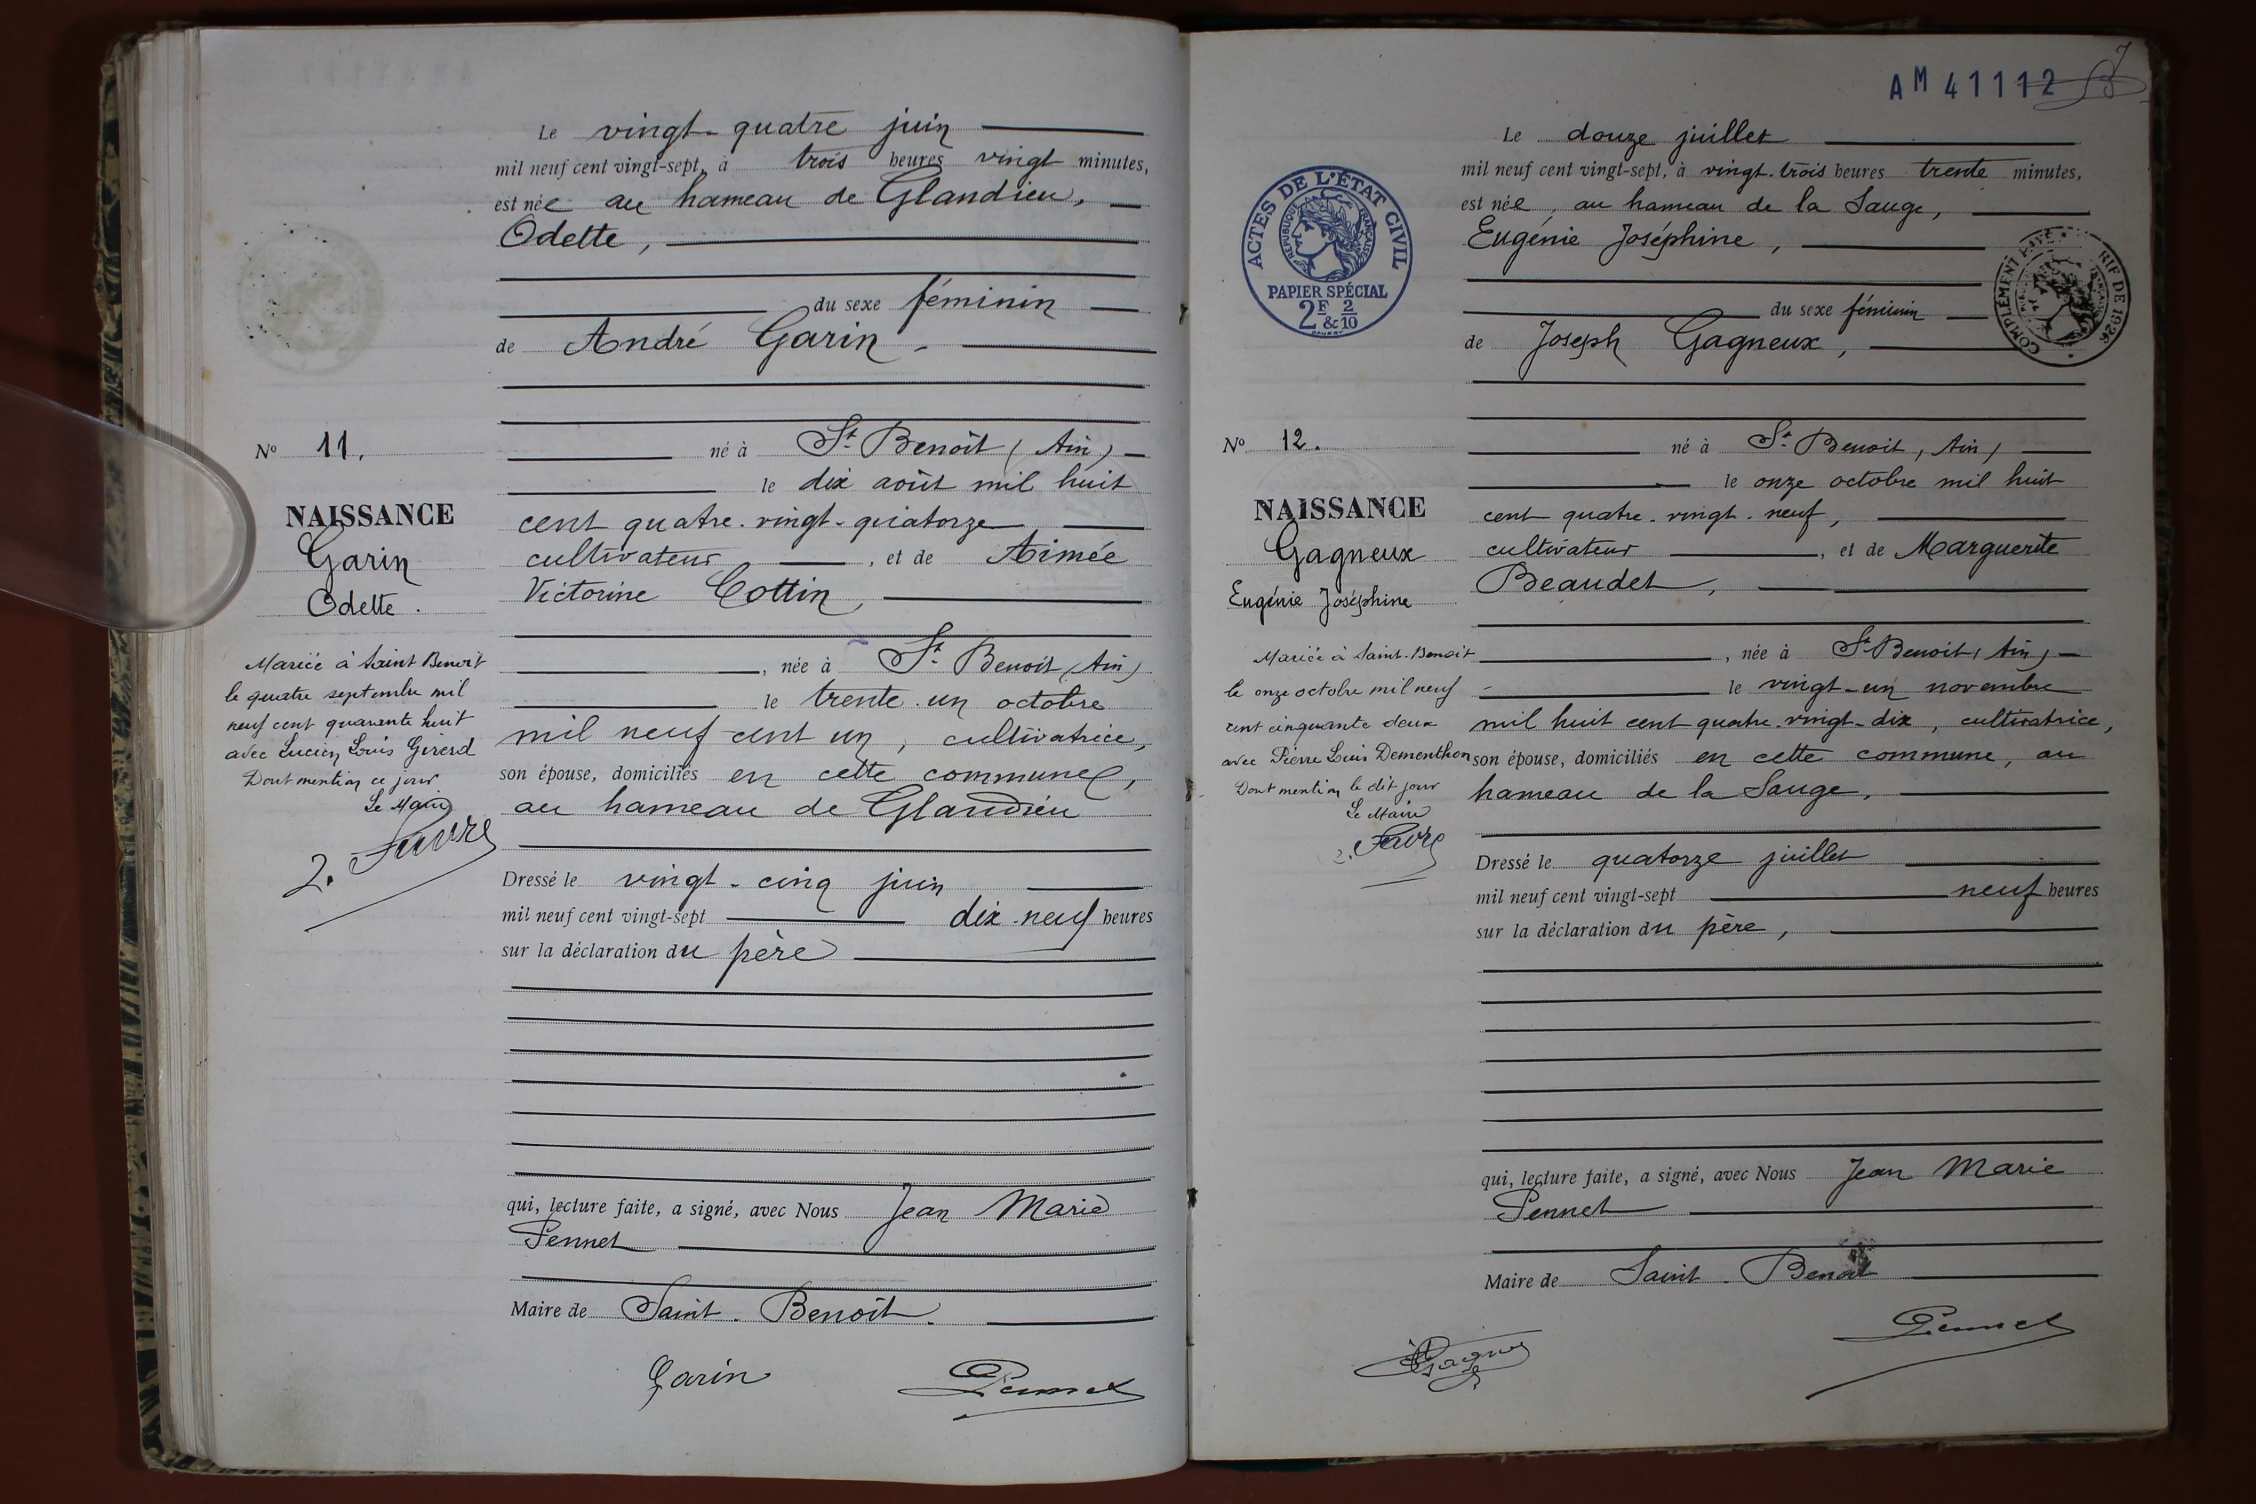 Le vingt-quatre juin
mil neuf cent vingt-sept, à trois heures vingt minutes,
est née au hameau de Glandieu,
Odette,
du sexe féminin
de André Garin
né à St Benoît (Ain)
le dix août mil huit
cent quatre-vingt-quatorze,
cultivateur, et de Aimée
Victorine Cottin,
, née à St Benoît (Ain)
le trente-un octobre
mil neuf cent un, cultivatrice,
son épouse, domiciliés en cette commune,
au hameau de Glandieu
Dressé le vingt-cinq juin
mil neuf cent vingt-sept dix-neuf heures
sur la déclaration du père
qui, lecture faite, a signé, avec Nous Jean Marie
Pennet
Maire de Saint-Benoît.
Garin Pennet
No 11.
NAISSANCE
Garin
Odette.
Mariée à Saint Benoit
le quatre septembre mil
neuf cent quarante huit
avec Lucien Louis Girerd
Dont mention ce jour
Le Maire
2. Favre
AM 41112
7
ACTES DE L'ÉTAT CIVIL
RÉPUBLIQUE FRANÇAISE
PAPIER SPÉCIAL
2F & 2/10
Le douze juillet
mil neuf cent vingt-sept, à vingt-trois heures trente minutes,
est née, au hameau de la Sauge,
Eugénie Joséphine,
du sexe féminin
de Joseph Gagneux,
né à St Benoit, (Ain)
le onze octobre mil huit
cent quatre-vingt-neuf,
cultivateur, et de Marguerite
Beaudet,
, née à St Benoit, (Ain)
le vingt-un novembre
mil huit cent quatre-vingt-dix, cultivatrice,
son épouse, domiciliés en cette commune, au
hameau de la Sauge,
Dressé le quatorze juillet
mil neuf cent vingt-sept neuf heures
sur la déclaration du père,
qui, lecture faite, a signé, avec Nous Jean Marie
Pennet
Maire de Saint-Benoit
Pennet
No 12.
NAISSANCE
Gagneux
Eugénie Joséphine
Mariée à Saint-Benoit
le onze octobre mil neuf
cent cinquante deux
avec Pierre Louis Dementhon
Dont mention le dit jour
Le Maire
2. Favre
COMPLÉMENT
TARIF DE 1926